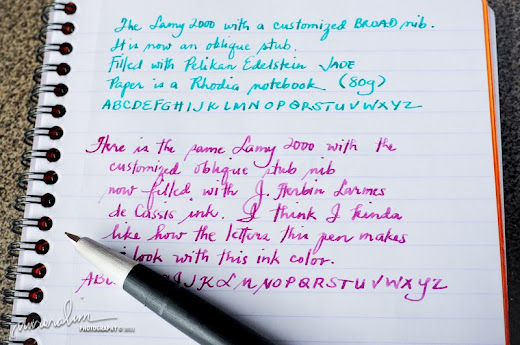 The Lamy 2000 with a customized BROAD nib.
It is now an oblique stub.
Filled with Pelikan Edelstein JADE
Paper is a Rhodia notebook (80g)
ABCDEFGHIJKLMNOPQRSTUVWXYZ
Here is the same Lamy 2000 with the
customized oblique stub nib
now filled with J. Herbin Larmes
de Cassis ink. I think I kinda
like how the letters this pen makes
look with this ink color.
AB JKLMNOPQRSTUVWXYZ
PHOTOGRAPHY © 2011